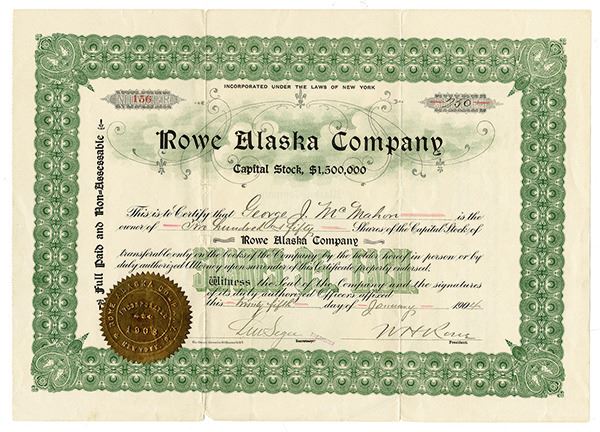 INCORPORATED UNDER THE LAWS OF NEW YORK
NUMBER 156
SHARES 250
Rowe Alaska Company
Capital Stock, $1,500,000
Full Paid and Non-Assessable
This is to Certify that George J. McMahon is the
owner of Two hundred and fifty Shares of the Capital Stock of
Rowe Alaska Company
transferable only on the books of the Company by the holder hereof in person or by
duly authorized Attorney upon surrender of this Certificate properly endorsed.
Witness the Seal of the Company and the signatures
of its duly authorized Officers affixed
this Twenty fifth day of January 1904
W H Rowe
Secretary
President
ROWE ALASKA COMPANY
INCORPORATED
1903